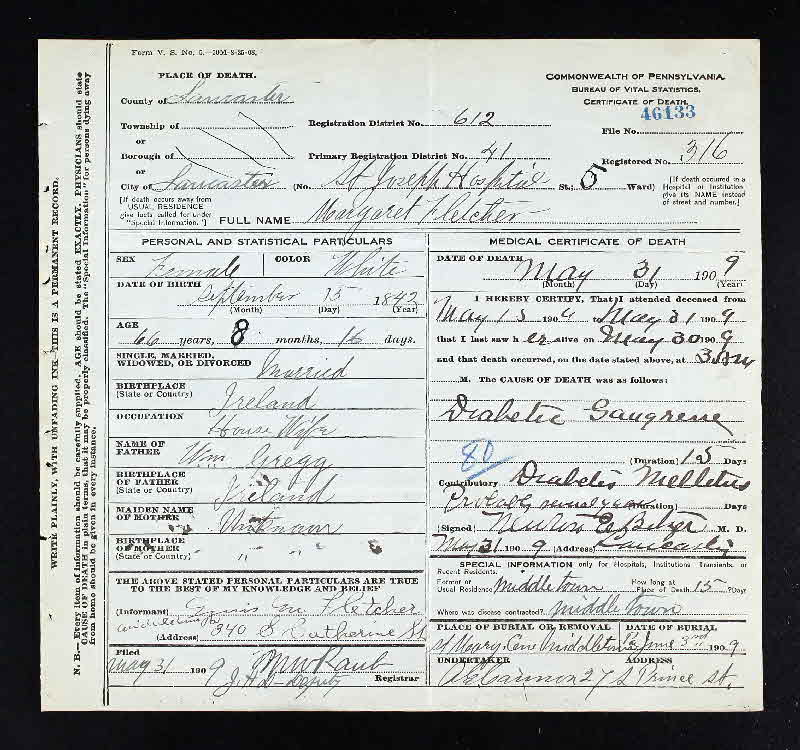 Form V. S. No. 5.—200M-8-25-08.
PLACE OF DEATH.
County of Lancaster
Township of
or
Borough of
or
City of Lancaster (No. St Joseph Hospital St.; 5 Ward)
[If death occurs away from USUAL RESIDENCE give facts called for under "Special Information."]
COMMONWEALTH OF PENNSYLVANIA.
BUREAU OF VITAL STATISTICS.
CERTIFICATE OF DEATH.
46133
Registration District No. 612
File No.
Primary Registration District No. 41
Registered No. 316
[If death occurred in a Hospital or Institution give its NAME instead of street and number.]
FULL NAME Margaret Fletcher
PERSONAL AND STATISTICAL PARTICULARS
SEX Female COLOR White
DATE OF BIRTH September 15 1842
(Month) (Day) (Year)
AGE 66 years, 8 months, 16 days.
SINGLE, MARRIED, WIDOWED, OR DIVORCED Married
BIRTHPLACE (State or Country) Ireland
OCCUPATION House Wife
NAME OF FATHER Wm Gregg
BIRTHPLACE OF FATHER (State or Country) Ireland
MAIDEN NAME OF MOTHER Unknown
BIRTHPLACE OF MOTHER (State or Country) " " " "
THE ABOVE STATED PERSONAL PARTICULARS ARE TRUE
TO THE BEST OF MY KNOWLEDGE AND BELIEF
(Informant) M Fletcher
(Address) 340 S Catherine St
Filed May 31 1909 Raub
Deputy Registrar
MEDICAL CERTIFICATE OF DEATH
DATE OF DEATH May 31 1909
(Month) (Day) (Year)
I HEREBY CERTIFY, That I attended deceased from
May 15 1909 to May 31 1909
that I last saw her alive on May 30 1909
and that death occurred, on the date stated above, at 3
M. The CAUSE OF DEATH was as follows:
Diabetic Gangrene
80 (Duration) 15 Days
Contributory Diabetis Mellitus
Probably several years (Duration) Days
(Signed) M. D.
May 31 1909 (Address) Lancaster
SPECIAL INFORMATION only for Hospitals, Institutions, Transients, or Recent Residents.
Former or Usual Residence Middletown How long at Place of Death 15 ? Days
Where was disease contracted? Middletown
PLACE OF BURIAL OR REMOVAL DATE OF BURIAL
St Mary Cem Middletown Pa June 3rd 1909
UNDERTAKER ADDRESS
27 S Prince St.
WRITE PLAINLY, WITH UNFADING INK—THIS IS A PERMANENT RECORD.
N. B.—Every item of information should be carefully supplied. AGE should be stated EXACTLY. PHYSICIANS should state
CAUSE OF DEATH in plain terms, that it may be properly classified. The "Special Information" for persons dying away
from home should be given in every instance.